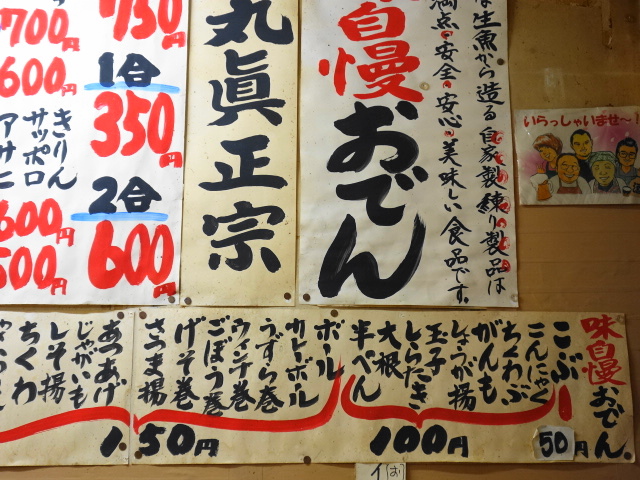 700円
600円
きりん
サッポロ
アサヒ
600円
500円
750円
1合
350円
2合
600円
丸眞正宗
自慢おでん
満点・安全・安心・美味しい食品です。
生魚から造る自家製練り製品は
いらっしゃいませ～!
味自慢おでん
こぶ
50円
こんにゃく
ちくわぶ
がんも
しょうが揚
玉子
しらたき
大根
半ぺん
100円
ボール
カレーボール
うずら巻
ウィンナ巻
ごぼう巻
げそ巻
さつま揚
あつあげ
じゃがいも
しそ揚
ちくわ
150円
イ
お